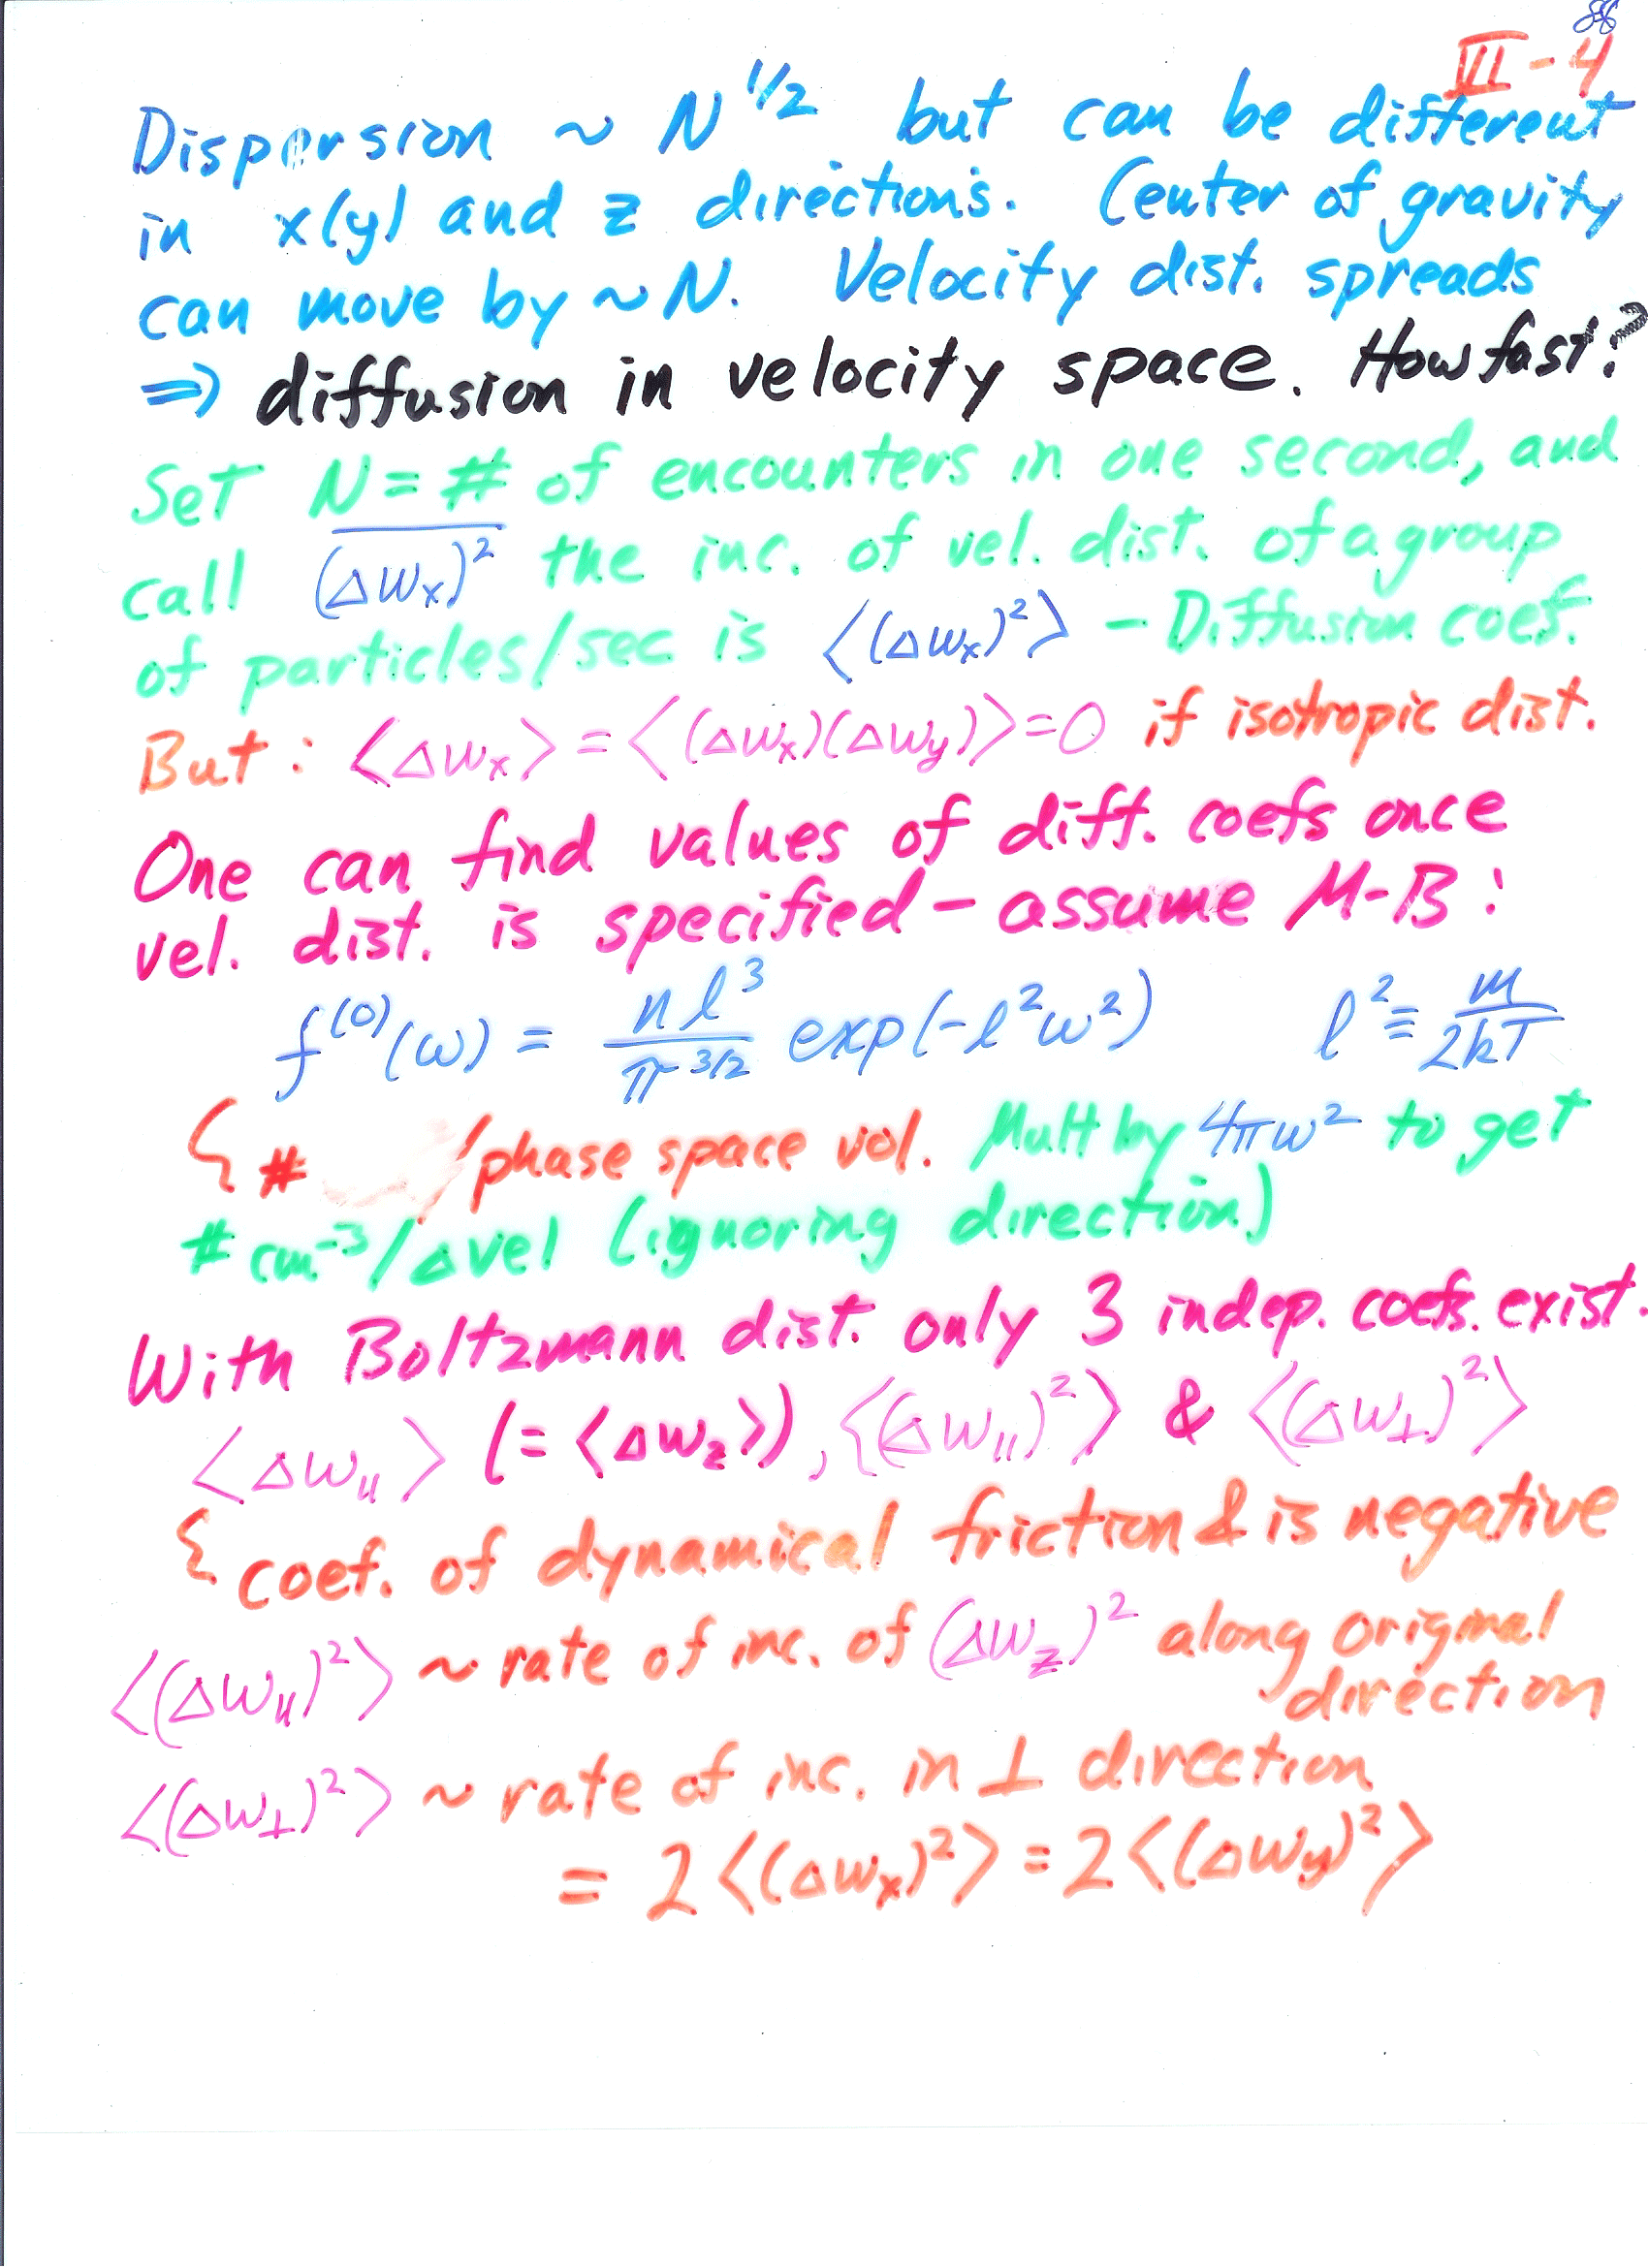 86
VI - 4
Dispersion ~ N^1/2 but can be different
in x(y) and z directions. Center of gravity
can move by ~ N. Velocity dist. spreads
⇒ diffusion in velocity space. How fast?
Set N = # of encounters in one second, and
call \overline{(Δw_x)^2} the inc. of vel. dist. of a group
of particles/sec is ⟨(Δw_x)^2⟩ – Diffusion coef.
But: ⟨Δw_x⟩ = ⟨(Δw_x)(Δw_y)⟩ = 0 if isotropic dist.
One can find values of diff. coefs once
vel. dist. is specified – assume M-B:
f^(0)(w) = \frac{n l^3}{π^{3/2}} exp(-l^2 w^2) l^2 ≡ \frac{m}{2kT}
{ # /phase space vol. Mult by 4πw^2 to get
# cm^-3/Δvel (ignoring direction)
With Boltzmann dist. only 3 indep. coefs. exist.
⟨Δw_∥⟩ (= ⟨Δw_z⟩), ⟨(Δw_∥)^2⟩ & ⟨(Δw_⊥)^2⟩
{ coef. of dynamical friction & is negative
⟨(Δw_∥)^2⟩ ~ rate of inc. of (Δw_z)^2 along original
direction
⟨(Δw_⊥)^2⟩ ~ rate of inc. in ⊥ direction
= 2⟨(Δw_x)^2⟩ = 2⟨(Δw_y)^2⟩